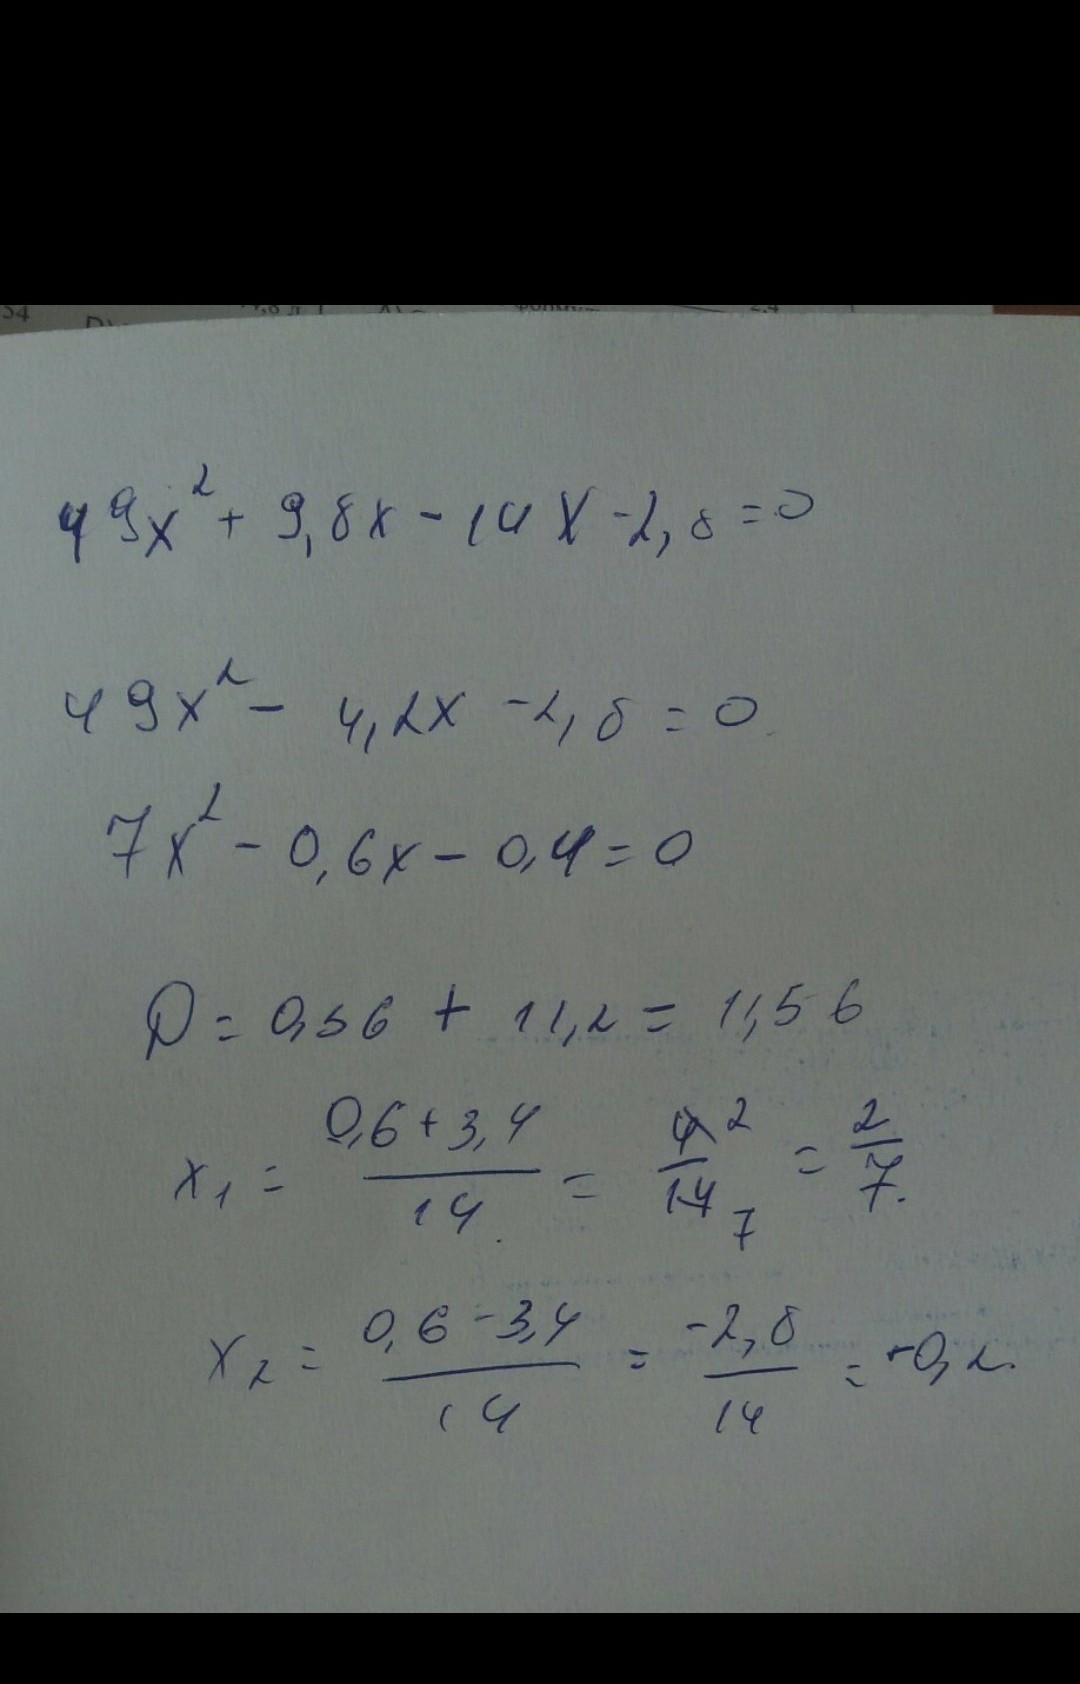 49x² + 9,8x - 14x - 2,8 = 0
49x² - 4,2x - 2,8 = 0
7x² - 0,6x - 0,4 = 0
D = 0,36 + 11,2 = 11,56
x₁ = (0,6 + 3,4)/14 = 4/14 2 7 = 2/7.
x₂ = (0,6 - 3,4)/14 = -2,8/14 = -0,2.